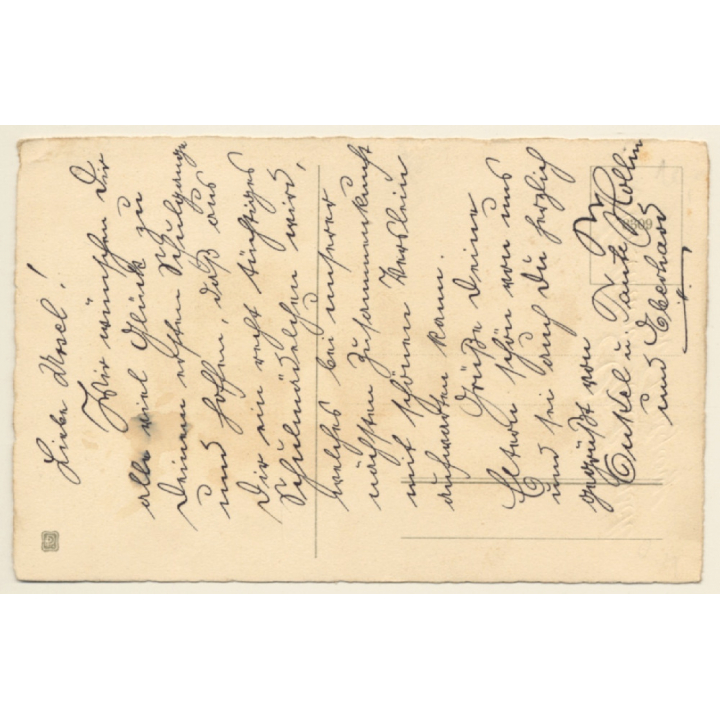 Liebe Ursel!
Wir wünschen Dir
alle viel Glück zu
Deinem ersten Schulgange
und hoffen, daß aus
Dir ein recht tüchtiges
Schulmädelchen wird,
welches bei unserer
nächsten Zusammenkunft
mit schönen Verslein
aufwarten kann.
Grüße Deine
Eltern schön von uns
und sei auch Du herzlich
gegrüßt von
Onkel u. Tante Hollin
und Eberhard